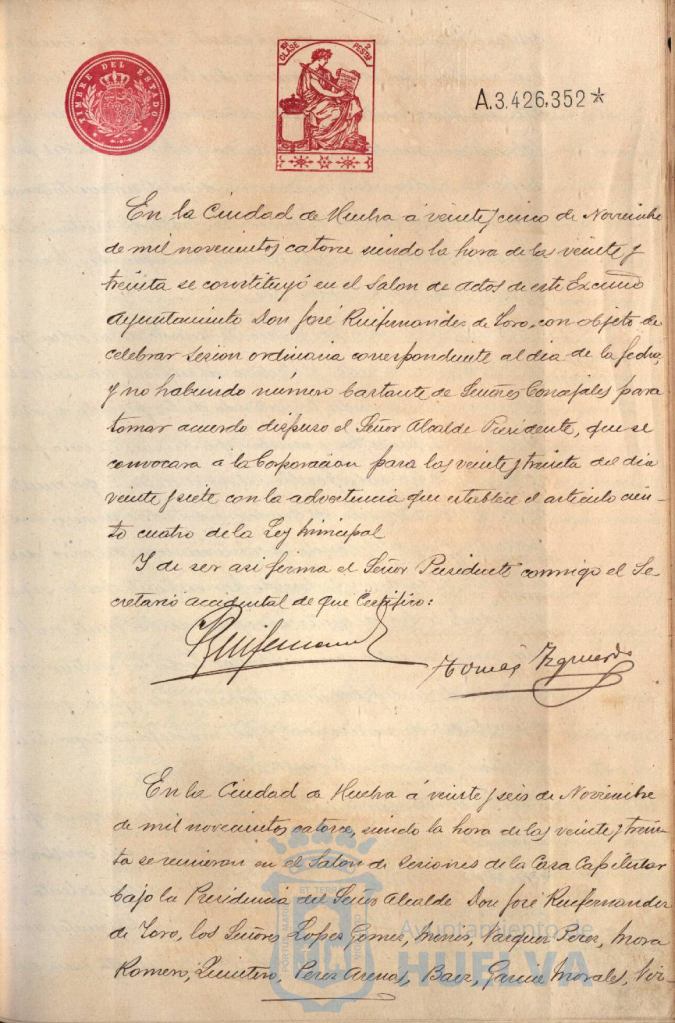 TIMBRE DEL ESTADO
CLASE
PESETAS
A.3.426,352*
En la Ciudad de Huelva á veinte y cinco de Noviembre
de mil novecientos catorce siendo la hora de las veinte y
treinta se constituyó en el Salon de actos de este Excmo
Ayuntamiento Don José Ruifernandez de Toro, con objeto de
celebrar sesion ordinaria correspondiente al dia de la fecha,
y no habiendo número bastante de Señores Concejales para
tomar acuerdo dispuso el Señor Alcalde Presidente, que se
convocara á la Corporacion para las veinte y treinta del dia
veinte y siete con la advertencia que establece el articulo cien-
to cuatro de la Ley Municipal
Y de ser asi firma el Señor Presidente conmigo el Se-
cretario accidental de que Certifico:
Ruifernandez
Tomás Izquierdo
En la Ciudad de Huelva á veinte y seis de Noviembre
de mil novecientos catorce, siendo la hora de las veinte y trein-
ta se reunieron en el Salon de Sesiones de la Casa Capitular
bajo la Presidencia del Señor Alcalde Don José Ruifernandez
de Toro, los Señores Lopez Gomez, Vazquez Perez, Mora
Romero, Quintero, Perez Arenas, Baez, Garcia Morales,
Ayuntamiento de
HUELVA